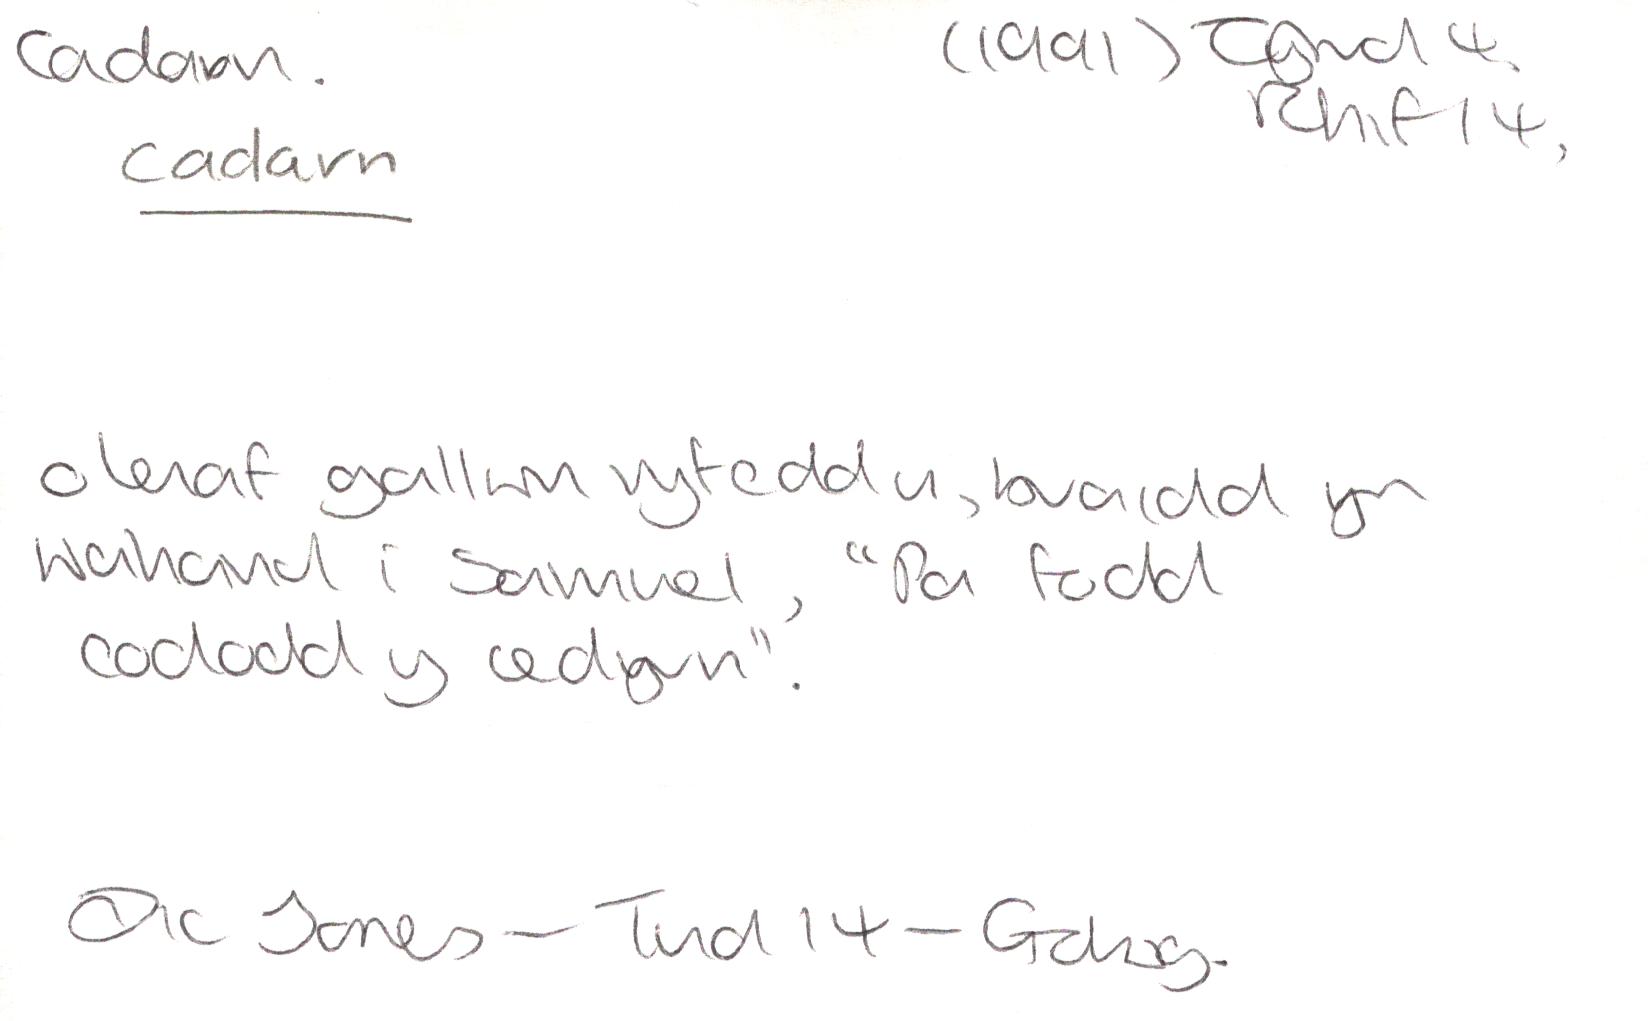 Cadarn. (1991) Tgrid 4,
Rhif 14,
cadarn
olenaf gallwn ryfeddu, braidd yn
wahanol i Samuel, "Pa fodd
cododd y cedyrn".
Dic Jones – Tud 14 –